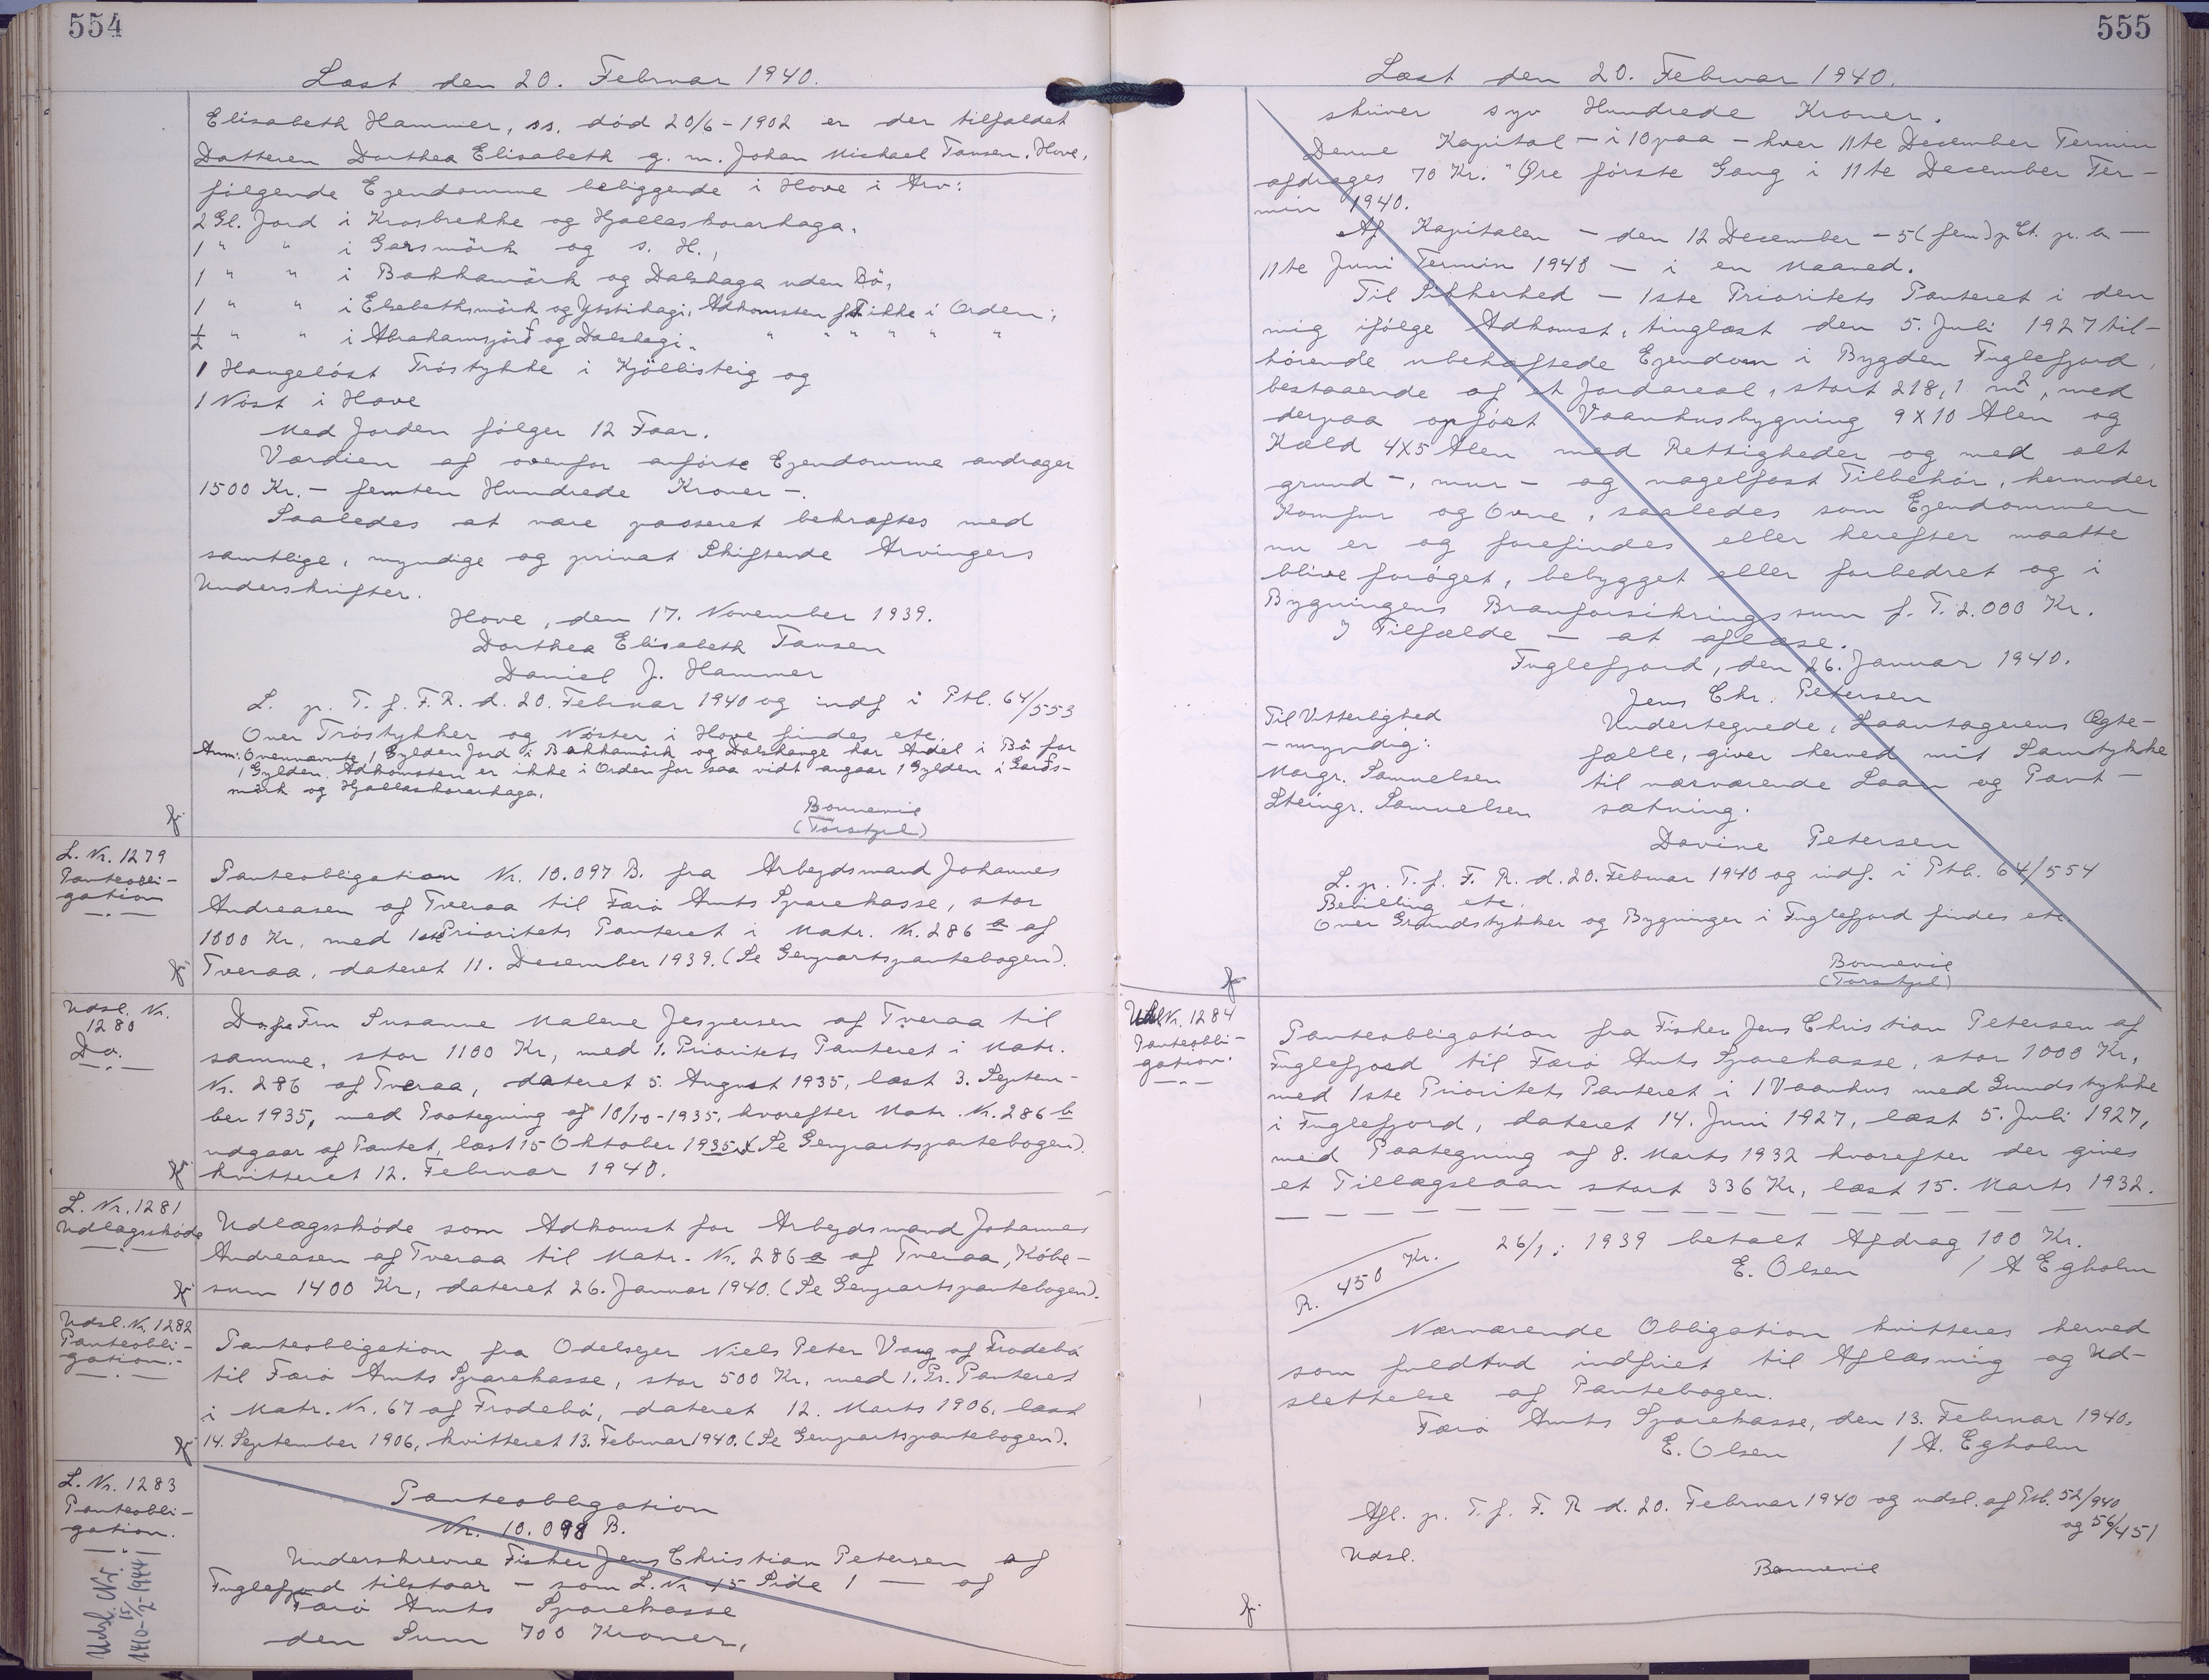 554
Læst den 20. Februar 1940.
Elisabeth Hammer, ss. död 20/6-1902 er der tilfaldet
Datteren Dorthea Elisabeth g. m. Johan Michael Tausen. Hove,
følgende Ejendomme beliggende i Hove i Arv:
2 Gl. Jord i Krosbrekke og Hjallaskorarhaga,
1 " " i Garsmörk og s. H.,
1 " " i Bakkamörk og Dalshaga uden Bö,
1 " " i Elsebethsmörk og Ytstihagi, Adkomsten ikke i Orden;
½ " " i Abrahamsjörd og Dalshagi. " " " " " "
1 Haugelöst Tröstykke i Kjöllisteig og
1 Nöst i Hove
Med Jorden følger 12 Faar.
Værdien af ovenfor anførte Ejendomme andrager
1500 Kr. - femten Hundrede Kroner -.
Saaledes at være passeret bekræftes med
samtlige, myndige og privat Skiftende Arvingers
Underskrifter.
Hove, den 17. November 1939.
Dorthea Elisabeth Tausen
Daniel J. Hammer
L. p. T. f. F. R. d. 20. Februar 1940 og indf i Ptb. 64/553
Over Tröstykker og Nöster i Hove findes etc.
Anm: Ovennævnte 1 Gylden Jord i Bakkamörk og Dalshauge har Andel i Bö for
1 Gylden. Adkomsten er ikke i Orden for saa vidt angaar 1 Gylden i Gards-
mörk og Hjallaskorarhaga.
Bonnevie
(Torskjel)
L. Nr. 1279
Panteobli-
gation
Panteobligation Nr. 10.097 B. fra Arbejdsmand Johannes
Andreasen af Tveraa til Færö Amts Sparekasse, stor
1000 Kr, med 1ste Prioritets Panteret i Matr. Nr. 286 a af
Tveraa, dateret 11. December 1939. (Se Genpartspantebogen).
Udsl. Nr.
1280
Do.
Do. fra Fru Susanne Malene Jespersen af Tveraa til
samme, stor 1100 Kr, med 1. Prioritets Panteret i Matr.
Nr. 286 af Tveraa, dateret 5. August 1935, læst 3. Septem-
ber 1935, med Paategning af 10/10-1935, hvorefter Matr. Nr. 286 b
udgaar af Pantet, læst 15 Oktober 1935, (Se Genpartspantebogen).
kvitteret 12. Februar 1940.
L. Nr. 1281
Udlægsskøde
Udlægsskøde som Adkomst for Arbejdsmand Johannes
Andreasen af Tveraa til Matr. Nr. 286 a af Tveraa, Köbe-
sum 1400 Kr, dateret 26. Januar 1940. (Se Genpartspantebogen).
Udsl. Nr. 1282
Panteobli-
gation.
Panteobligation fra Odelsejer Niels Peter Vang af Frodebö
til Færö Amts Sparekasse, stor 500 Kr, med 1. Pr. Panteret
i Matr. Nr. 67 af Frodebö, dateret 12. Marts 1906, læst
14. September 1906, kvitteret 13. Februar 1940. (Se Genpartspantebogen).
L. Nr. 1283
Panteobli-
gation.
Udsl. Nr.
1410-15/2-1944
Panteobligation
Nr. 10.098 B.
Underskrevne Fisker Jens Christian Petersen af
Fuglefjord tilstaar - som L. Nr 45 Side 1 - og
Færö Amts Sparekasse
den Sum 700 Kroner,
555
Læst den 20. Februar 1940.
skriver syv Hundrede Kroner.
Denne Kapital - i 10 paa - hver 11te December Termin
afdrages 70 Kr. " Øre første Gang i 11te December Ter-
min 1940.
Af Kapitalen - den 12 December - 5 (fem) p Ct. p. a -
11te Juni Termin 1940 - i en Maaned.
Til Sikkerhed - 1ste Prioritets Panteret i den
mig ifølge Adkomst, tinglæst den 5. Juli 1927 til-
hørende ubehæftede Ejendom i Bygden Fuglefjord,
bestaaende af et Jordareal, stort 218,1 m², med
derpaa opført Vaanhusbygning 9 X 10 Alen og
Kæld 4X5 Alen med Rettigheder og med alt
grund-, mur- og nagelfast Tilbehör, herunder
Komfur og Ovne, saaledes som Ejendommen
nu er og forefindes eller herefter maatte
blive forøget, bebygget eller forbedret og i
Bygningens Branforsikringssum f. T. 2.000 Kr.
I Tilfælde - at aflæse.
Fuglefjord, den 26. Januar 1940.
Jens Chr. Petersen
Til Vitterlighed
- myndig:
Margr. Samuelsen
Steingr. Samuelsen
Undertegnede, Laantagerens Ægte-
fælle, giver herved mit Samtykke
til nærværende Laan og Pant-
sætning.
Davine Petersen
L. p. T. f. F. R. d. 20. Februar 1940 og indf. i Ptb. 64/554
Bevilling etc.
Over Grundstykker og Bygninger i Fuglefjord findes etc
Bonnevie
(Torskjel)
Udsl. Nr. 1284
Panteobli-
gation.
Panteobligation fra Fisker Jens Christian Petersen af
Fuglefjord til Færö Amts Sparekasse, stor 1000 Kr,
med 1ste Prioritets Panteret i 1 Vaanhus med Grundstykke
i Fuglefjord, dateret 14. Juni 1927, læst 5. Juli 1927,
med Paategning af 8. Marts 1932 hvorefter der gives
et Tillægslaan stort 336 Kr, læst 15. Marts 1932.
R. 450 Kr.
26/1. 1939 betalt Afdrag 100 Kr.
E. Olsen / A Egholm
Nærværende Obligation kvitteres herved
som fuldtud indfriet til Aflæsning og Ud-
slettelse af Pantebogen.
Færö Amts Sparekasse, den 13. Februar 1940.
E. Olsen / A. Egholm
Afl. p. T. f. F. R d. 20. Februar 1940 og udsl. af Ptb. 52/940
og 56/451
Udsl.
Bonnevie